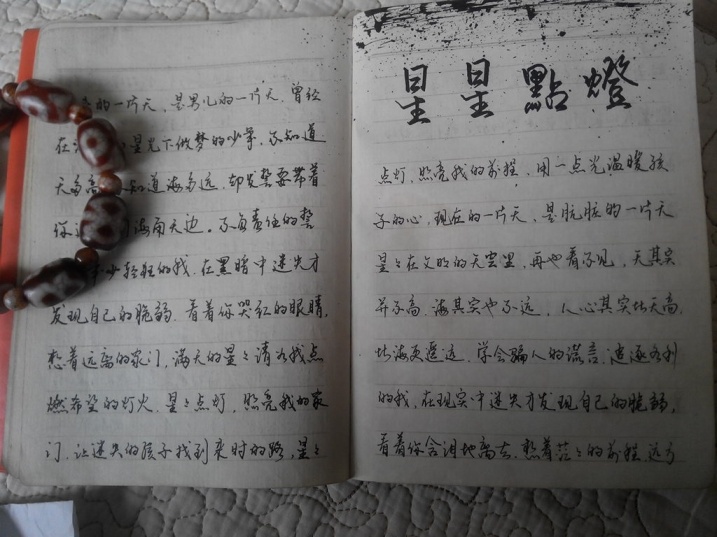 的一片天,是男儿的一片天,曾经
在星光下做梦的少年,不知道
天多高知道海多远,却发誓要带着
你海角天边。不负责任的誓
少轻狂的我,在黑暗中迷失才
发现自己的脆弱,看着你哭红的眼睛,
想着远离的家门,满天的星々请为我点
燃希望的灯火,星々点灯,照亮我的家
门,让迷失的孩子找到来时的路,星々
星星點燈
点灯,照亮我的前程,用一点光温暖孩
子的心,现在的一片天,是肮脏的一片天
星々在文明的天空里,再也看不见,天其实
并不高,海其实也不远,人心其实比天高,
比海更遥远,学会骗人的谎言,追逐名利
的我,在现实中迷失才发现自己的脆弱,
看着你含泪地离去,想着茫々的前程,远方